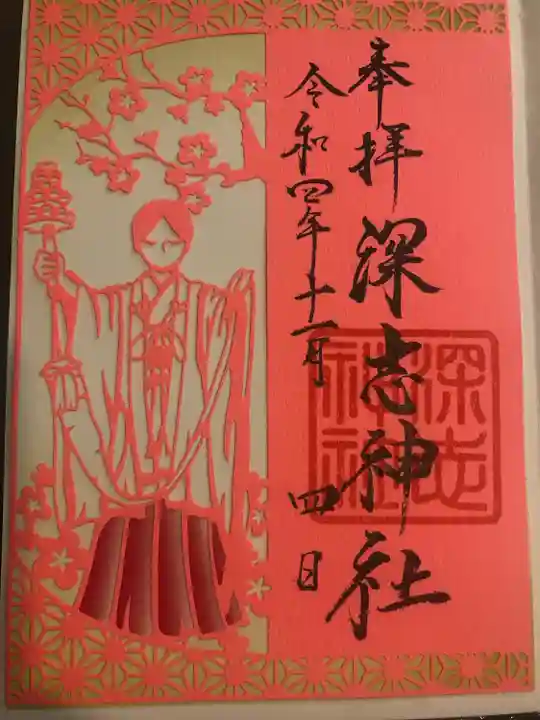 奉拝 深志神社
令和四年十一月 四日
深志
神社